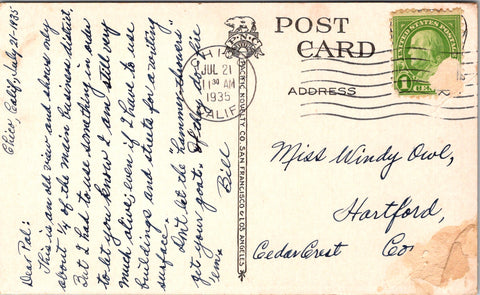 Chico, Calif, July 21-1935
Dear Pal:
This is an old view and shows only
about 1/4 of the main business district.
But I had to use something in order
to let you know I am still very
much alive, even if I have to use
buildings and streets for a writing
surface.
Don't let the "Summer-shoners"
get your goat. If they do - fix
'em. Bill
PACIFIC NOVELTY CO. SAN FRANCISCO & LOS ANGELES
PNC
POST
CARD
ADDRESS
CHICO
JUL 21
11 30 AM
1935
CALIF.
UNITED STATES POSTAGE
1 CENT
Miss Windy Owl,
Hartford,
Cedar Crest Co